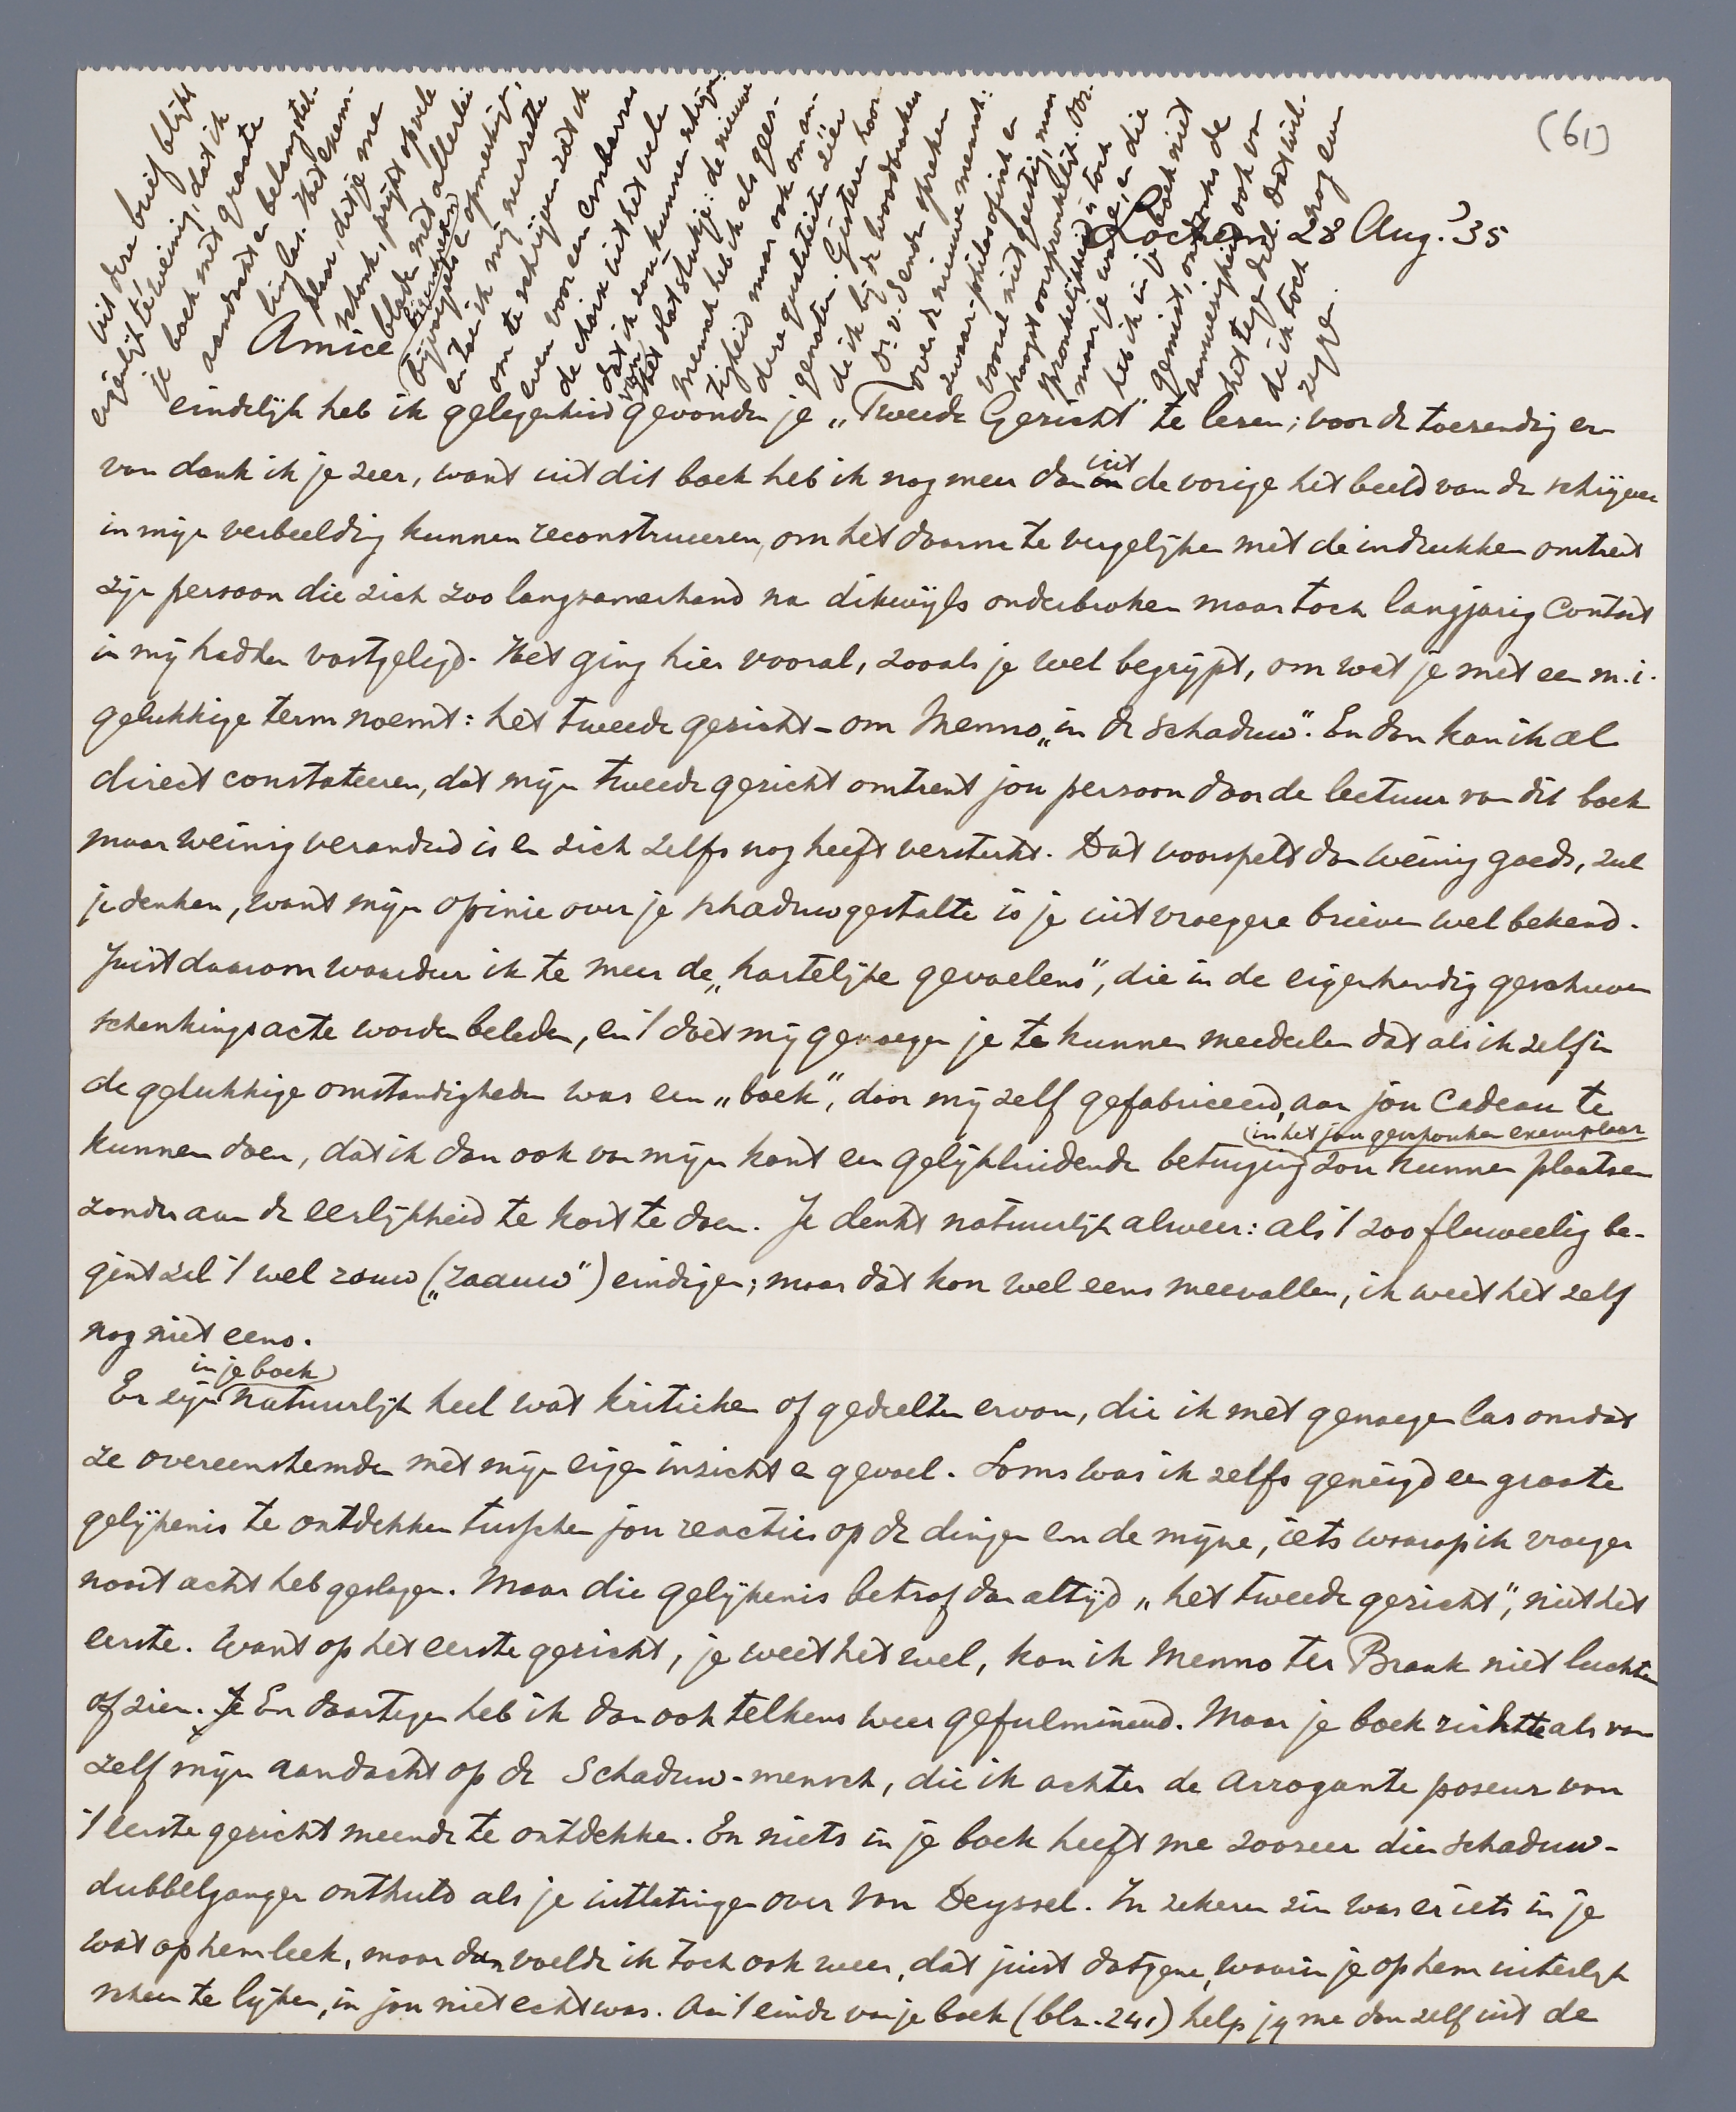 (61)
Lochem 28 Aug. '35
Amice
eindelijk heb ik gelegenheid gevonden je „Tweede Gezicht" te lezen; voor de toezending er
van dank ik je zeer, want uit dit boek heb ik nog meer dan uit de vorige het beeld van de schrijver
in mijn verbeelding kunnen reconstrueeren, om het daarna te vergelijken met de indrukken omtrent
zijn persoon die zich zoo langzamerhand na dikwijls onderbroken maar toch langjarig contact
in mij hadden vastgelegd. Het ging hier vooral, zooals je wel begrijpt, om wat je met een m.i.
gelukkige term noemt: het tweede gezicht – om Menno „in de schaduw". En dan kan ik al
direct constateeren, dat mijn tweede gezicht omtrent jou persoon door de lectuur van dit boek
maar weinig veranderd is en zich zelfs nog heeft versterkt. Dat voorspelt dan weinig goeds, zul
je denken, want mijn opinie over je schaduwgestalte is je uit vroegere brieven wel bekend.
Juist daarom waardeer ik te meer de „hartelijke gevoelens", die in de eigenhandig geschreven
schenkingsacte worden beleden, en 't doet mij genoegen je te kunnen meedeelen dat als ik zelf in
de gelukkige omstandigheden was een „boek", door mij zelf gefabriceerd, aan jou cadeau te
kunnen doen, dat ik dan ook van mijn kant een gelijkluidende betuiging (in het jou geschonken exemplaar) zou kunnen plaatsen
zonder aan de eerlijkheid te kort te doen. Je denkt natuurlijk alweer: als 't zoo fluweelig be-
gint zal 't wel rauw („raauw") eindigen; maar dat kon wel eens meevallen, ik weet het zelf
nog niet eens.
Er zijn (in je boek) natuurlijk heel wat kritieken of gedeelten ervan, die ik met genoegen las omdat
ze overeenstemden met mijn eigen inzicht en gevoel. Soms was ik zelfs geneigd een groote
gelijkenis te ontdekken tusschen jou reacties op de dingen en de mijne, iets waarop ik vroeger
nooit acht heb geslagen. Maar die gelijkenis betrof dan altijd „het tweede gezicht", niet het
eerste. Want op het eerste gezicht, je weet het wel, kan ik Menno ter Braak niet luchten
of zien. Je En daartegen heb ik dan ook telkens weer gefulmineerd. Maar je boek richtte als van
zelf mijn aandacht op de Schaduw-mensch, die ik achter de arrogante poseur van
't eerste gezicht meende te ontdekken. En niets in je boek heeft me zoozeer dien schaduw-
dubbelganger onthuld als je uitlatingen over Van Deyssel. In zekeren zin was er iets in je
wat op hem leek, maar dan voelde ik toch ook weer, dat juist datgene, waarin je op hem uiterlijk
scheen te lijken, in jou niet echt was. Aan 't einde van je boek (blz. 241) help jij me dan zelf uit de
uit deze brief blijkt
eigenlijk te weinig, dat ik
je boek met groote
aandacht en belangstel-
ling las. Het exem-
plaar, dat je me
schonk, prijkt op vele
bladz. met allerlei
bijvoegsels en opmerkingen,
en toen ik mij neerzette
om te schrijven zat ik
even voor een embarras
de choix uit het vele
dat ik zou kunnen schrijven.
van het slotstukje: de nieuwe
mensch heb ik als gees-
tigheid maar ook om an-
dere qualiteiten zéér
genoten. Gisteren hoor-
de ik bij de Woodbrookers
Dr. v. Senden spreken
over de nieuwe mensch:
zwaar-philosofisch en
vooral niet geestig, maar
hoogst oorspronkelijk. Oor-
spronkelijkheid is toch
maar je ware, en die
heb ik in je boek niet
gemist, ondanks de
aanwezigheid ook van
het tegendeel. Dat wil-
de ik toch nog even
zeggen.